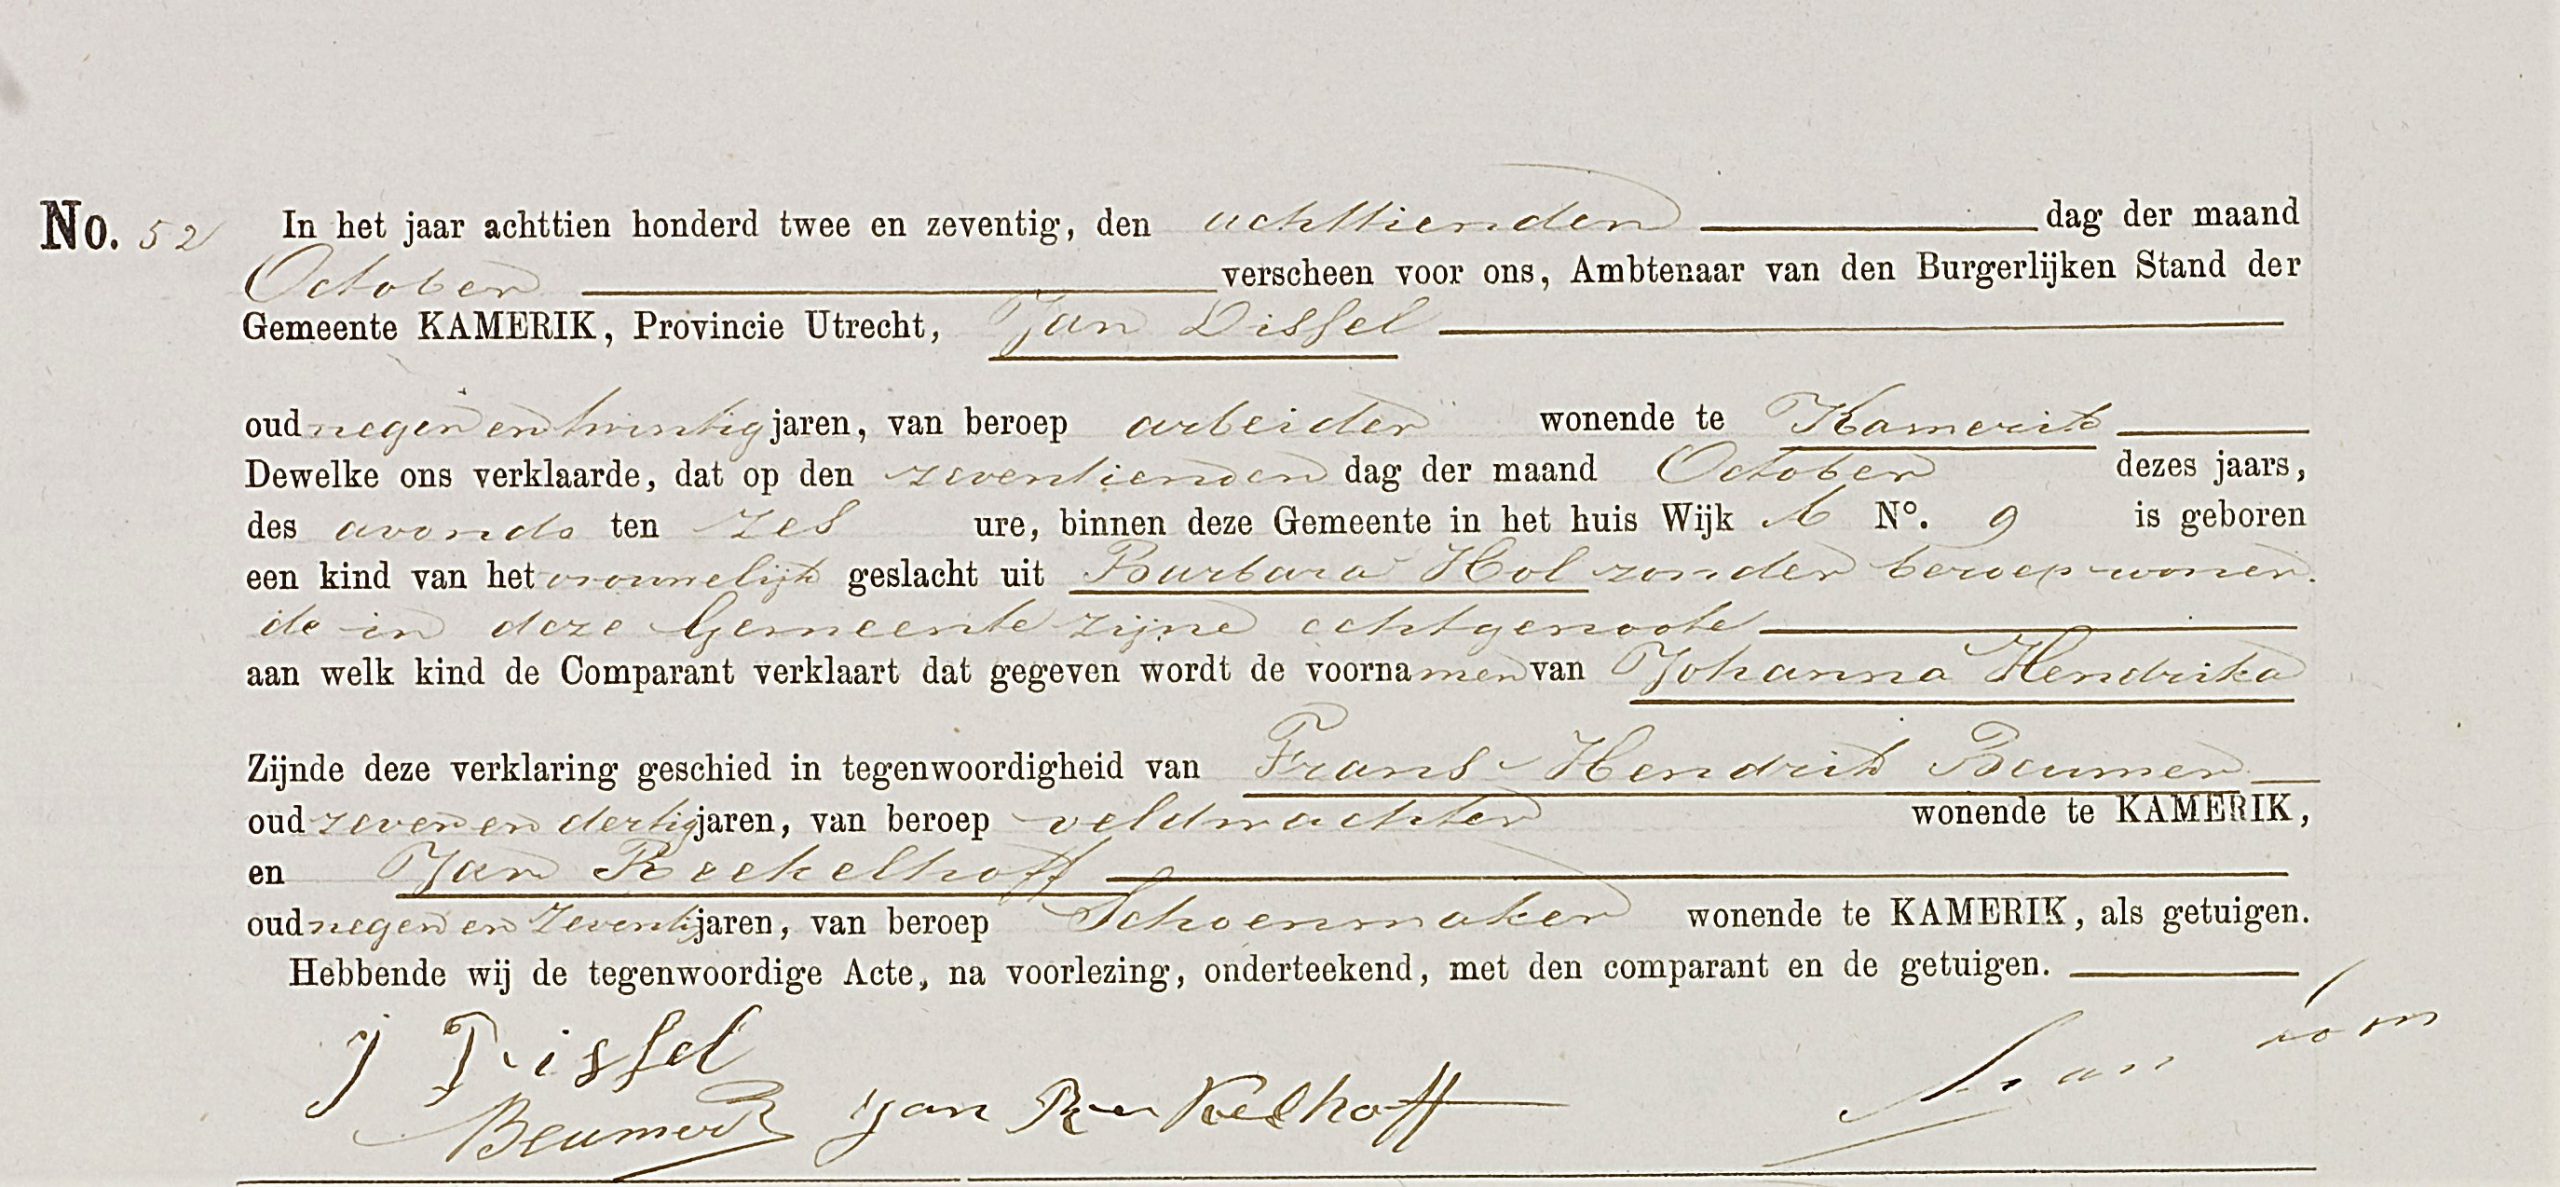 No. 52 In het jaar achttien honderd twee en zeventig, den achttienden dag der maand
October verscheen voor ons, Ambtenaar van den Burgerlijken Stand der
Gemeente KAMERIK, Provincie Utrecht, Jan Dissel
oud negen en twintig jaren, van beroep arbeider wonende te Kamerik
Dewelke ons verklaarde, dat op den zeventienden dag der maand October dezes jaars,
des avonds ten zes ure, binnen deze Gemeente in het huis Wijk N°. 9 is geboren
een kind van het vrouwelijk geslacht uit Barbara Hol zonder beroep wonen
de in deze Gemeente zijne echtgenoote
aan welk kind de Comparant verklaart dat gegeven wordt de voornamen van Johanna Hendrika
Zijnde deze verklaring geschied in tegenwoordigheid van Frans Hendrik Beumer
oud zeven en dertig jaren, van beroep veldwachter wonende te KAMERIK,
en Jan Reekelhoff
oud negen en zeventig jaren, van beroep Schoenmaker wonende te KAMERIK, als getuigen.
Hebbende wij de tegenwoordige Acte, na voorlezing, onderteekend, met den comparant en de getuigen.
J Dissel
Beumer Jan Reekelhoff